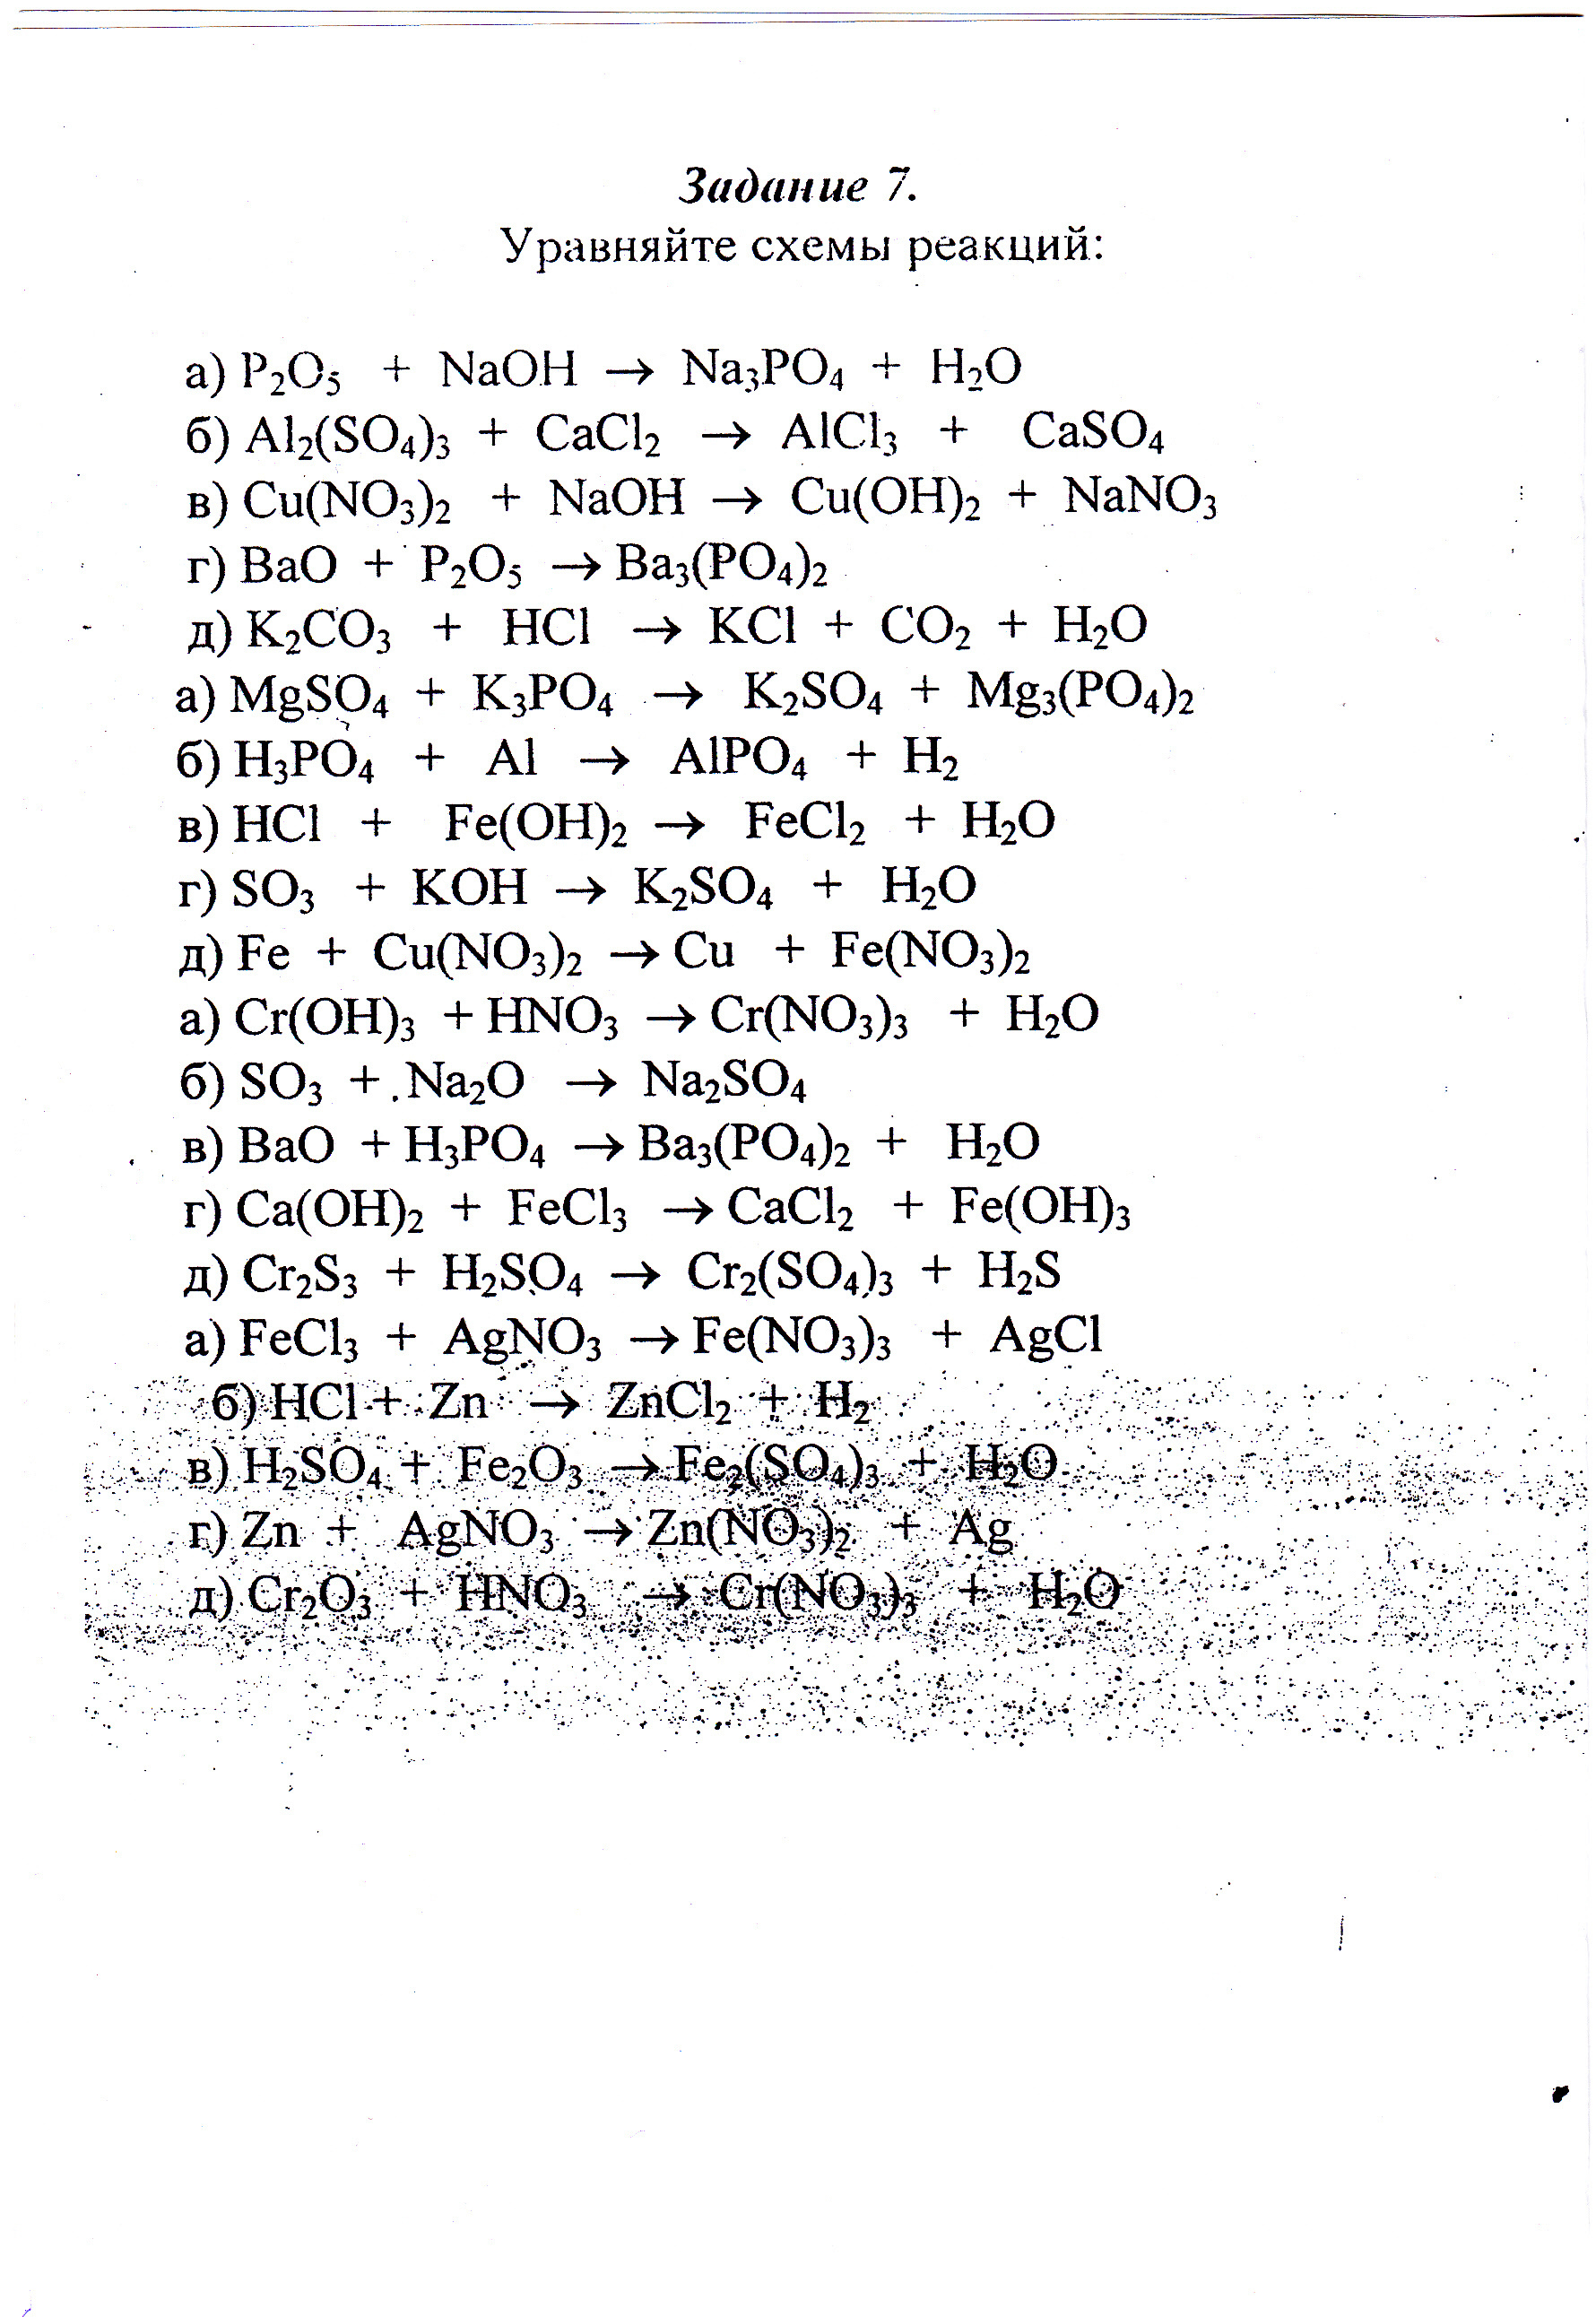 Задание 7.
Уравняйте схемы реакций:
а) P₂O₅ + NaOH → Na₃PO₄ + H₂O
б) Al₂(SO₄)₃ + CaCl₂ → AlCl₃ + CaSO₄
в) Cu(NO₃)₂ + NaOH → Cu(OH)₂ + NaNO₃
г) BaO + P₂O₅ → Ba₃(PO₄)₂
д) K₂CO₃ + HCl → KCl + CO₂ + H₂O
а) MgSO₄ + K₃PO₄ → K₂SO₄ + Mg₃(PO₄)₂
б) H₃PO₄ + Al → AlPO₄ + H₂
в) HCl + Fe(OH)₂ → FeCl₂ + H₂O
г) SO₃ + KOH → K₂SO₄ + H₂O
д) Fe + Cu(NO₃)₂ → Cu + Fe(NO₃)₂
а) Cr(OH)₃ + HNO₃ → Cr(NO₃)₃ + H₂O
б) SO₃ + Na₂O → Na₂SO₄
в) BaO + H₃PO₄ → Ba₃(PO₄)₂ + H₂O
г) Ca(OH)₂ + FeCl₃ → CaCl₂ + Fe(OH)₃
д) Cr₂S₃ + H₂SO₄ → Cr₂(SO₄)₃ + H₂S
а) FeCl₃ + AgNO₃ → Fe(NO₃)₃ + AgCl
б) HCl + Zn → ZnCl₂ + H₂
в) H₂SO₄ + Fe₂O₃ → Fe₂(SO₄)₃ + H₂O
г) Zn + AgNO₃ → Zn(NO₃)₂ + Ag
д) Cr₂O₃ + HNO₃ → Cr(NO₃)₃ + H₂O